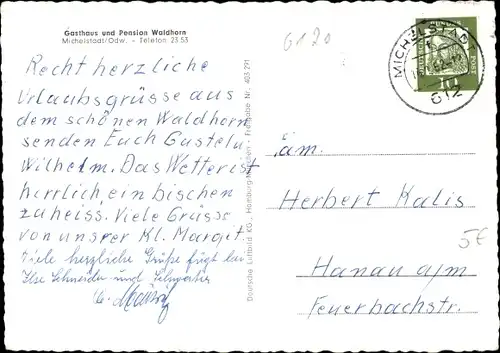 Gasthaus und Pension Waldhorn
Michelstadt/Odw. - Telefon 23 53
6120
Recht herzliche
Urlaubsgrüsse aus
dem schönen Waldhorn
senden Euch Gustel u
Wilhelm. Das Wetter ist
herrlich, ein bischen
zu heiss. Viele Grüsse
von unsrer Kl. Margit
Viele herzliche Grüße fügt bei
Ilse Schneider und
Deutsche Luftbild KG., Hamburg-München - Freigabe Nr. 405 291
MICHELSTADT
612
10
Fam.
Herbert Kalis
5€
Hanau a/m
Feuerbachstr.